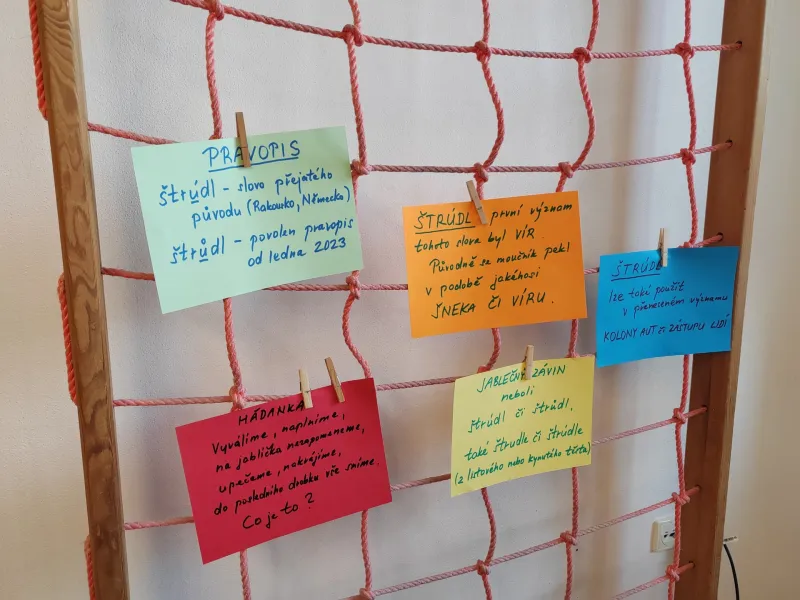 PRAVOPIS
štrúdl - slovo přejatého
původu (Rakousko, Německo)
štrůdl - povolen pravopis
od ledna 2023
ŠTRÚDL první význam
tohoto slova byl VÍR.
Původně se moučník pekl
v podobě jakéhosi
ŠNEKA ČI VÍRU.
ŠTRÚDL
lze také použít
v přeneseném významu
KOLONY AUT či ZÁSTUPU LIDÍ
HÁDANKA
Vyválíme, naplníme,
na jablíčka nezapomeneme,
upečeme, nakrájíme,
do posledního drobku vše sníme.
Co je to?
JABLEČNÝ ZÁVIN
neboli
štrúdl či štrůdl,
také štrudle či štrúdle
(z listového nebo kynutého těsta)